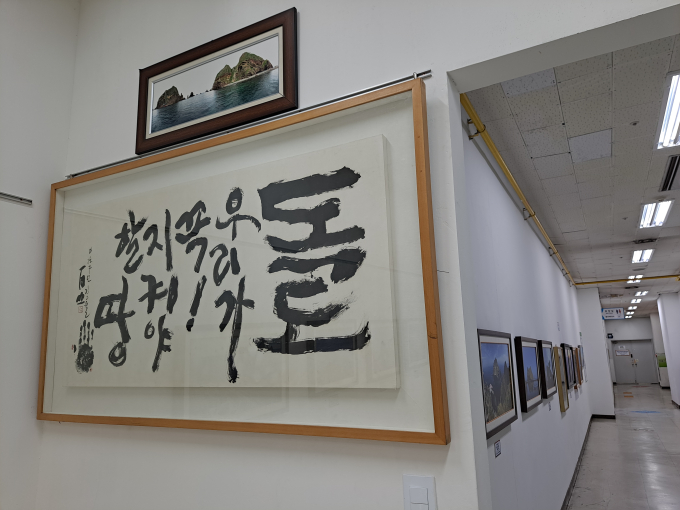 독도
우리가
꼭!
지켜야
할땅